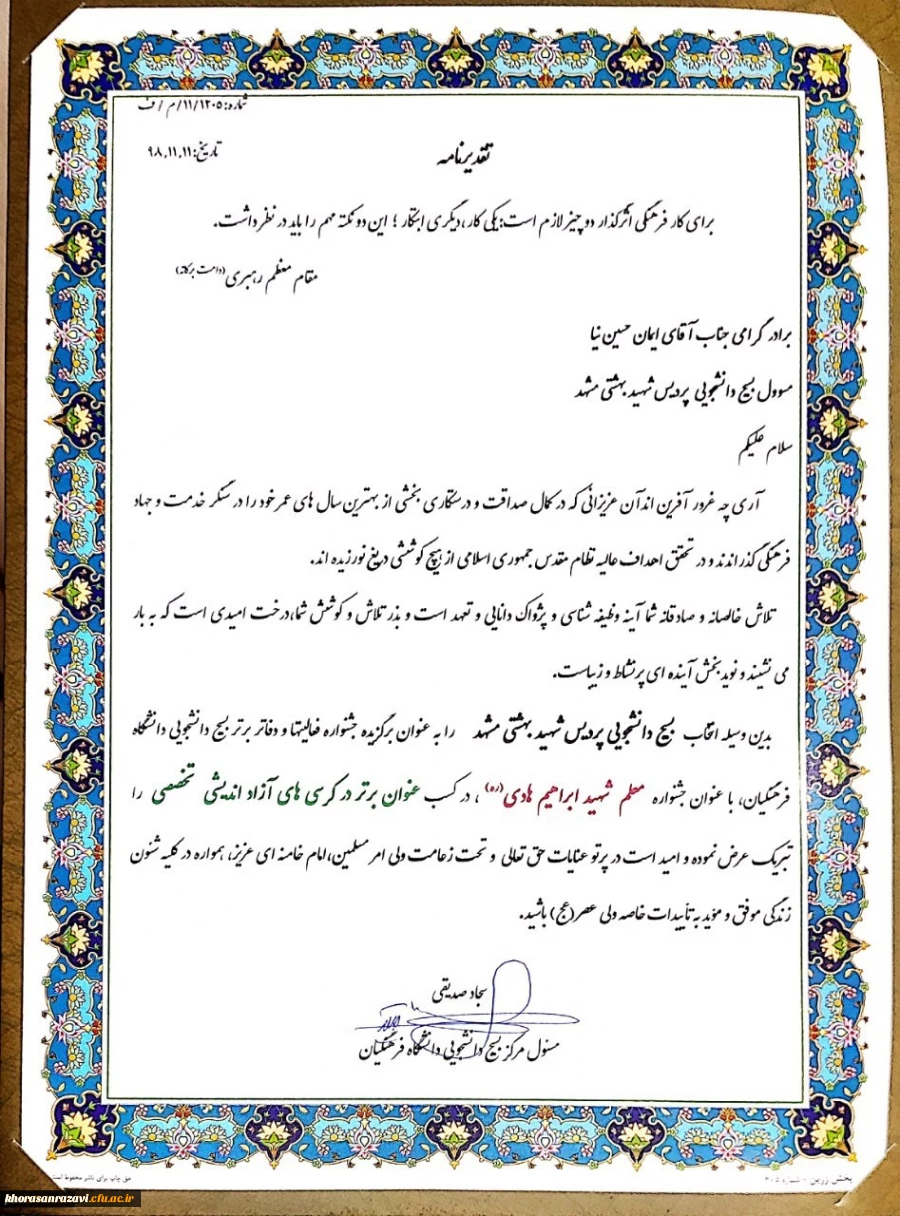 شماره: ۱۱/۱۲۰۵/م/ف
تاریخ: ۹۸.۱۱.۱۱
تقدیرنامه
برای کار فرهنگی اثرگذار دو چیز لازم است: یکی کار، دیگری ابتکار ؛ این دو نکته مهم را باید در نظر داشت.
مقام معظم رهبری (دامت برکاته)
برادر گرامی جناب آقای ایمان حسین نیا
مسوول بسیج دانشجویی پردیس شهید بهشتی مشهد
سلام علیکم
آری چه غرور آفرین اند آن عزیزانی که در کمال صداقت و درستکاری بخشی از بهترین سال های عمر خود را در سنگر خدمت و جهاد
فرهنگی گذراندند و در تحقق اهداف عالیه نظام مقدس جمهوری اسلامی از هیچ کوششی دریغ نورزیده اند.
تلاش خالصانه و صادقانه شما آینه وظیفه شناسی و پژواک دانایی و تعهد است و بذر تلاش و کوشش شما، درخت امیدی است که به بار
می نشیند و نوید بخش آینده ای پرنشاط و زیباست.
بدین وسیله انتخاب بسیج دانشجویی پردیس شهید بهشتی مشهد را به عنوان برگزیده جشنواره فعالیتها و دفاتر برتر بسیج دانشجویی دانشگاه
فرهنگیان، با عنوان جشنواره معلم شهید ابراهیم هادی (ره) ، در کسب عنوان برتر در کرسی های آزاد اندیشی تخصصی را
تبریک عرض نموده و امید است در پرتو عنایات حق تعالی و تحت زعامت ولی امر مسلمین، امام خامنه ای عزیز، همواره در کلیه شئون
زندگی موفق و موید به تأییدات خاصه ولی عصر (عج) باشید.
سجاد صدیقی
مسئول مرکز بسیج دانشجویی دانشگاه فرهنگیان
حق چاپ برای ناشر محفوظ است
پخش زرین - شماره ۳۰۵
khorasanrazavi.cfu.ac.ir